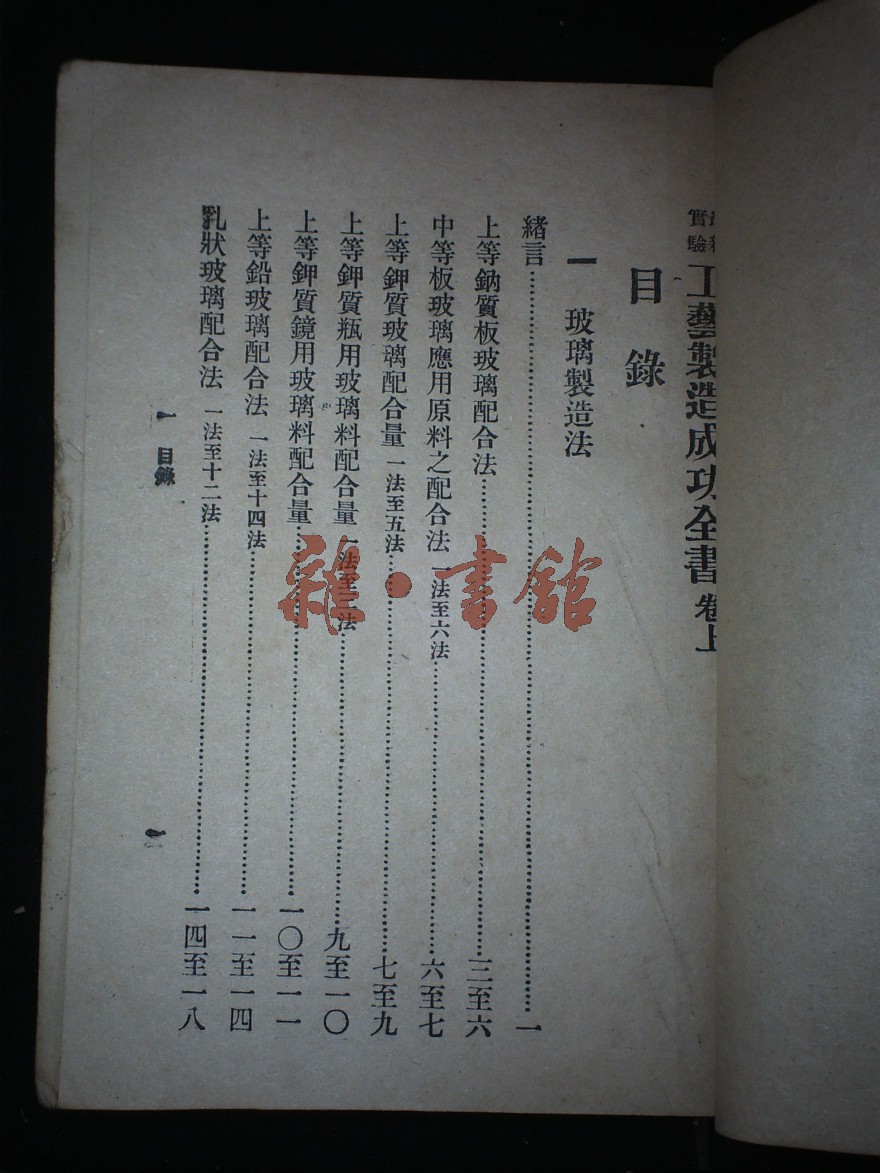 實驗 工藝製造成功全書 卷上
目錄
一 玻璃製造法
緒言……一
上等鈉質板玻璃配合法……三至六
中等板玻璃應用原料之配合法 一法至六法……六至七
上等鉀質玻璃配合量 一法至五法……七至九
上等鉀質瓶用玻璃料配合量 一法至三法……九至一〇
上等鉀質鏡用玻璃料配合量……一〇至一一
上等鉛玻璃配合法 一法至十四法……一一至一四
乳狀玻璃配合法 一法至十二法……一四至一八
一 目錄
雜·書館